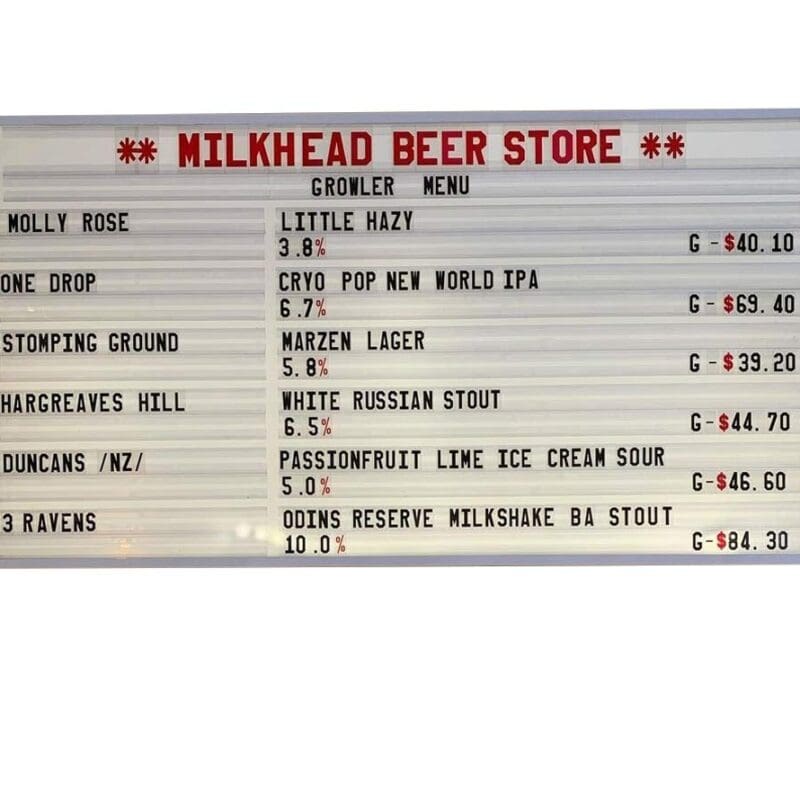 ** MILKHEAD BEER STORE **
GROWLER MENU
MOLLY ROSE LITTLE HAZY
3.8% G-$40.10
ONE DROP CRYO POP NEW WORLD IPA
6.7% G-$69.40
STOMPING GROUND MARZEN LAGER
5.8% G-$39.20
HARGREAVES HILL WHITE RUSSIAN STOUT
6.5% G-$44.70
DUNCANS /NZ/ PASSIONFRUIT LIME ICE CREAM SOUR
5.0% G-$46.60
3 RAVENS ODINS RESERVE MILKSHAKE BA STOUT
10.0% G-$84.30